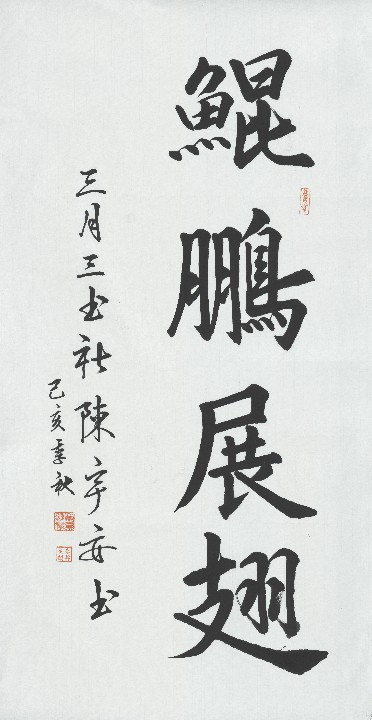 鯤鵬展翅
三月三书社陳宇安书
己亥季秋